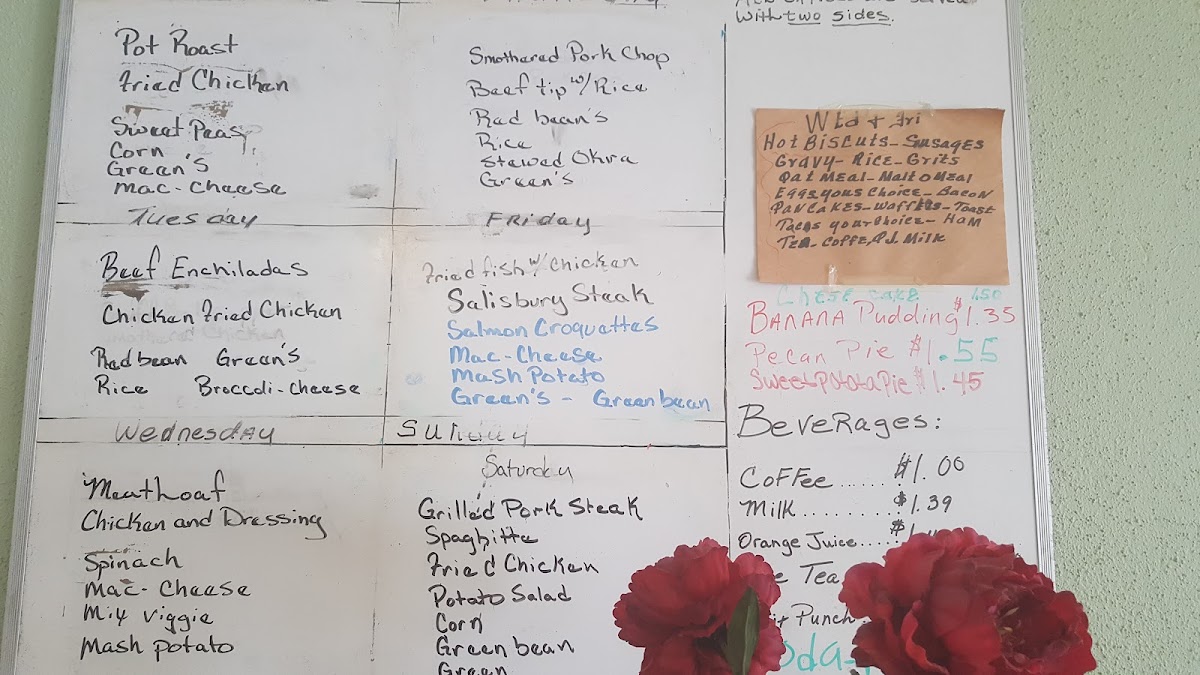 Pot Roast
Fried Chicken
Sweet Peas
Corn
Green's
Mac-Cheese
Tuesday
Beef Enchiladas
Chicken Fried Chicken
Red bean Green's
Rice Broccoli-cheese
Wednesday
Meathoaf
Chicken and Dressing
Spinach
Mac-Cheese
Mix Viggie
Mash Potato
Smothered Pork Chop
Beef tip w/ Rice
Red bean's
Rice
Stewed Okra
Green's
Friday
Fried fish w/ chicken
Salisbury Steak
Salmon Croquettes
Mac-Cheese
Mash Potato
Green's - Green bean
Sunday
Saturday
Grilled Pork Steak
Spaghitte
Fried Chicken
Potato Salad
Corn
Green bean
Green
served
with two sides.
Wed + Fri
Hot Biscuts-Susages
Gravy-Rice-Grits
Oat Meal-Malt o Meal
Eggs your Choice-Bacon
Pancakes-Waffles-Toast
Tacos your choice-Ham
Tea-Coffe, O.J. Milk
Chese cake 1.50
Banana Pudding $1.35
Pecan Pie $1.55
Sweet Potato Pie $1.45
Beverages:
Coffee......$1.00
Milk.........$1.39
Orange Juice.....$1.
Tea
Punch